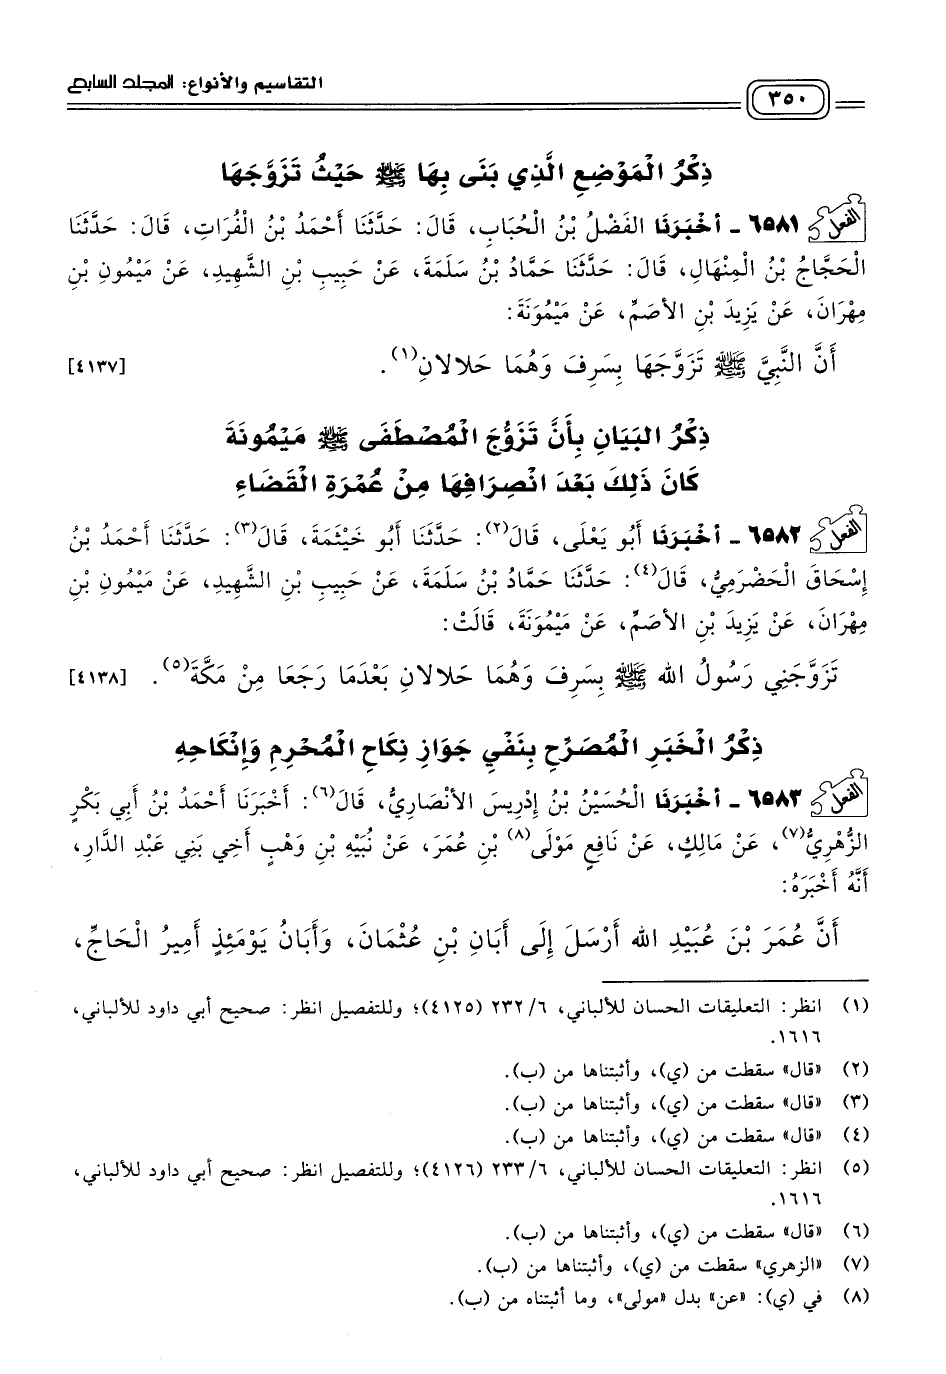 التقاسيم والأنواع: المجلد السابع
٣٥٠
ذِكْرُ الْمَوْضِعِ الَّذِي بَنَى بِهَا ﷺ حَيْثُ تَزَوَّجَهَا
الفعل ٦٥٨١ - أخْبَرَنَا الفَضْلُ بْنُ الْحُبَابِ، قَالَ: حَدَّثَنَا أَحْمَدُ بْنُ الْفُرَاتِ، قَالَ: حَدَّثَنَا
الْحَجَّاجُ بْنُ الْمِنْهَالِ، قَالَ: حَدَّثَنَا حَمَّادُ بْنُ سَلَمَةَ، عَنْ حَبِيبِ بْنِ الشَّهِيدِ، عَنْ مَيْمُونِ بْنِ
مِهْرَانَ، عَنْ يَزِيدَ بْنِ الأصَمِّ، عَنْ مَيْمُونَةَ:
أَنَّ النَّبِيَّ ﷺ تَزَوَّجَهَا بِسَرِفَ وَهُمَا حَلالانِ(١). [٤١٣٧]
ذِكْرُ البَيَانِ بِأَنَّ تَزَوُّجَ الْمُصْطَفَى ﷺ مَيْمُونَةَ
كَانَ ذَلِكَ بَعْدَ انْصِرَافِهَا مِنْ عُمْرَةِ الْقَضَاءِ
الفعل ٦٥٨٢ - أخْبَرَنَا أَبُو يَعْلَى، قَالَ(٢): حَدَّثَنَا أَبُو خَيْثَمَةَ، قَالَ(٣): حَدَّثَنَا أَحْمَدُ بْنُ
إِسْحَاقَ الْحَضْرَمِيُّ، قَالَ(٤): حَدَّثَنَا حَمَّادُ بْنُ سَلَمَةَ، عَنْ حَبِيبِ بْنِ الشَّهِيدِ، عَنْ مَيْمُونِ بْنِ
مِهْرَانَ، عَنْ يَزِيدَ بْنِ الأصَمِّ، عَنْ مَيْمُونَةَ، قَالَتْ:
تَزَوَّجَنِي رَسُولُ الله ﷺ بِسَرِفَ وَهُمَا حَلالانِ بَعْدَمَا رَجَعَا مِنْ مَكَّةَ(٥). [٤١٣٨]
ذِكْرُ الْخَبَرِ الْمُصَرِّحِ بِنَفْيِ جَوَازِ نِكَاحِ الْمُحْرِمِ وَإِنْكَاحِهِ
الفعل ٦٥٨٣ - أخْبَرَنَا الْحُسَيْنُ بْنُ إِدْرِيسَ الأنْصَارِيُّ، قَالَ(٦): أَخْبَرَنَا أَحْمَدُ بْنُ أَبِي بَكْرٍ
الزُّهْرِيُّ(٧)، عَنْ مَالِكٍ، عَنْ نَافِعٍ مَوْلَى(٨) بْنِ عُمَرَ، عَنْ نُبَيْهِ بْنِ وَهْبٍ أَخِي بَنِي عَبْدِ الدَّارِ،
أَنَّهُ أَخْبَرَهُ:
أَنَّ عُمَرَ بْنَ عُبَيْدِ الله أَرْسَلَ إِلَى أَبَانِ بْنِ عُثْمَانَ، وَأَبَانُ يَوْمَئِذٍ أَمِيرُ الْحَاجِّ،
(١) انظر: التعليقات الحسان للألباني، ٦/ ٢٣٢ (٤١٢٥)؛ وللتفصيل انظر: صحيح أبي داود للألباني،
١٦١٦.
(٢) «قال» سقطت من (ي)، وأثبتناها من (ب).
(٣) «قال» سقطت من (ي)، وأثبتناها من (ب).
(٤) «قال» سقطت من (ي)، وأثبتناها من (ب).
(٥) انظر: التعليقات الحسان للألباني، ٦/ ٢٣٣ (٤١٢٦)؛ وللتفصيل انظر: صحيح أبي داود للألباني،
١٦١٦.
(٦) «قال» سقطت من (ي)، وأثبتناها من (ب).
(٧) «الزهري» سقطت من (ي)، وأثبتناها من (ب).
(٨) في (ي): «عن» بدل «مولى»، وما أثبتناه من (ب).